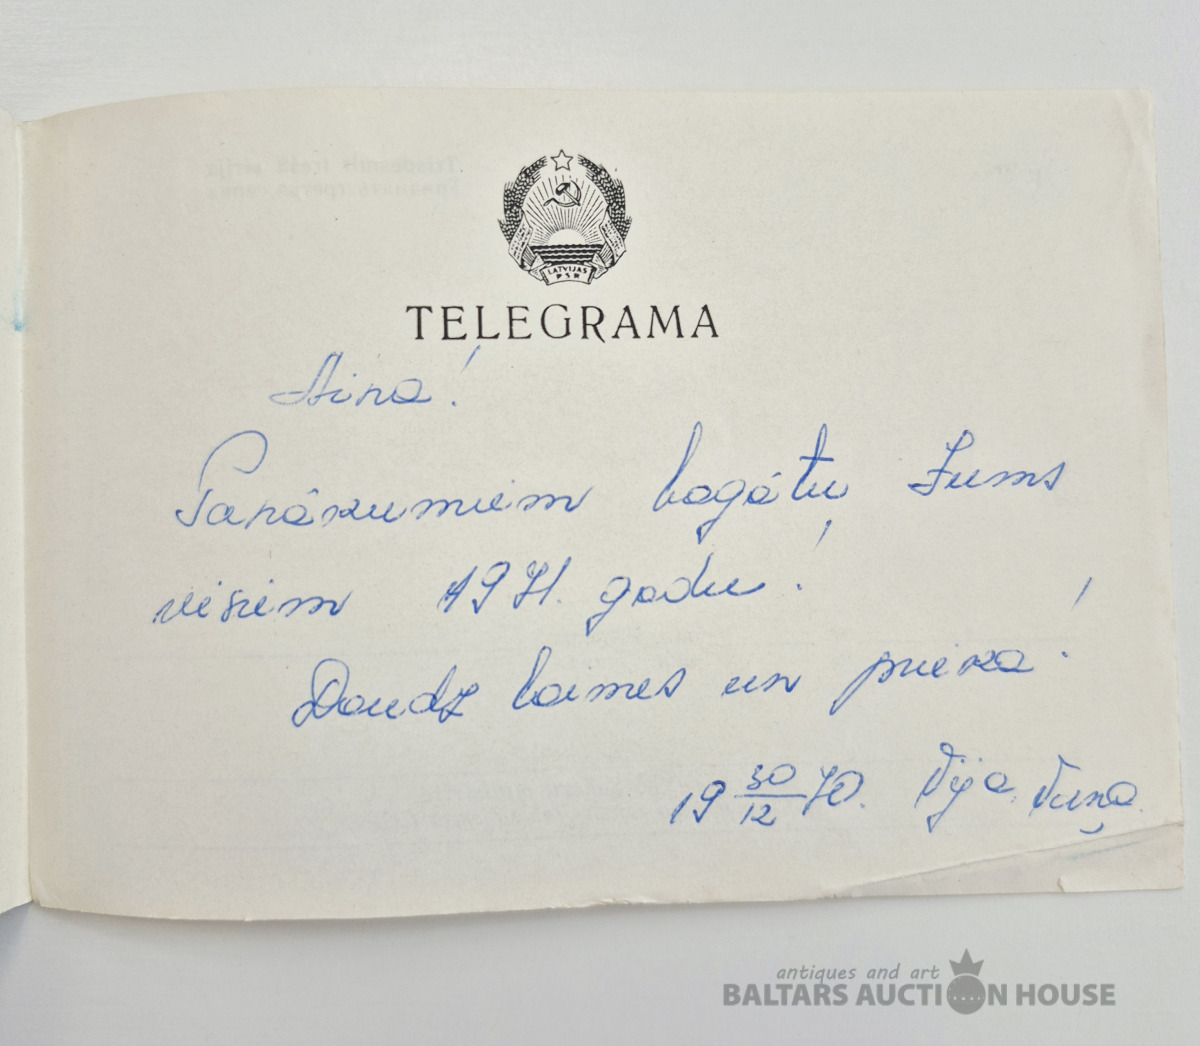 LATVIJAS
PSR
TELEGRAMA
Aina!
Panākumiem bagātu Jums
visiem 1971. gadu!
Daudz laimes un prieka!
19 30/12 70. Vija
antiques and art
BALTARS AUCTION HOUSE